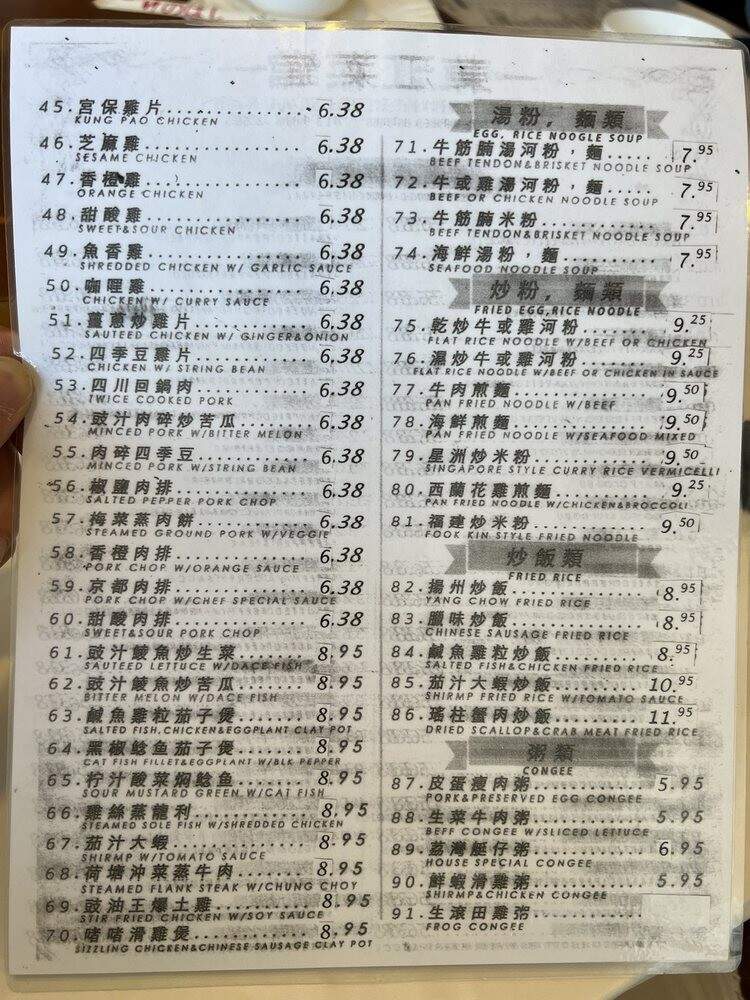 45.宮保雞片............6.38
KUNG PAO CHICKEN
46.芝麻雞............6.38
SESAME CHICKEN
47.香橙雞............6.38
ORANGE CHICKEN
48.甜酸雞............6.38
SWEET&SOUR CHICKEN
49.魚香雞............6.38
SHREDDED CHICKEN W/ GARLIC SAUCE
50.咖哩雞............6.38
CHICKEN W/ CURRY SAUCE
51.薑蔥炒雞片............6.38
SAUTEED CHICKEN W/ GINGER&ONION
52.四季豆雞片............6.38
CHICKEN W/ STRING BEAN
53.四川回鍋肉............6.38
TWICE COOKED PORK
54.豉汁肉碎炒苦瓜............6.38
MINCED PORK W/BITTER MELON
55.肉碎四季豆............6.38
MINCED PORK W/STRING BEAN
56.椒鹽肉排............6.38
SALTED PEPPER PORK CHOP
57.梅菜蒸肉餅............6.38
STEAMED GROUND PORK W/VEGGIE
58.香橙肉排............6.38
PORK CHOP W/ORANGE SAUCE
59.京都肉排............6.38
PORK CHOP W/CHEF SPECIAL SAUCE
60.甜酸肉排............6.38
SWEET&SOUR PORK CHOP
61.豉汁鯪魚炒生菜............8.95
SAUTEED LETTUCE W/DACE FISH
62.豉汁鯪魚炒苦瓜............8.95
BITTER MELON W/DACE FISH
63.鹹魚雞粒茄子煲............8.95
SALTED FISH, CHICKEN&EGGPLANT CLAY POT
64.黑椒鯰鱼茄子煲............8.95
CAT FISH FILLET&EGGPLANT W/BLK PEPPER
65.柠汁酸菜焖鯰鱼............8.95
SOUR MUSTARD GREEN W/CAT FISH
66.雞絲蒸龍利............8.95
STEAMED SOLE FISH W/SHREDDED CHICKEN
67.茄汁大蝦............8.95
SHIRMP W/TOMATO SAUCE
68.荷塘沖菜蒸牛肉............8.95
STEAMED FLANK STEAK W/CHUNG CHOY
69.豉油王爆土雞............8.95
STIR FRIED CHICKEN W/SOY SAUCE
70.啫啫滑雞煲............8.95
SIZZLING CHICKEN&CHINESE SAUSAGE CLAY POT
湯粉，麵類
EGG, RICE NOOGLE SOUP
71.牛筋腩湯河粉，麵.....7.95
BEEF TENDON&BRISKET NOODLE SOUP
72.牛或雞湯河粉，麵.....7.95
BEEF OR CHICKEN NOODLE SOUP
73.牛筋腩米粉............7.95
BEEF TENDON&BRISKET NOODLE SOUP
74.海鮮湯粉，麵.........7.95
SEAFOOD NOODLE SOUP
炒粉，麵類
FRIED EGG,RICE NOODLE
75.乾炒牛或雞河粉........9.25
FLAT RICE NOODLE W/BEEF OR CHICKEN
76.濕炒牛或雞河粉........9.25
FLAT RICE NOODLE W/BEEF OR CHICKEN IN SAUCE
77.牛肉煎麵............9.50
PAN FRIED NOODLE W/BEEF
78.海鮮煎麵............9.50
PAN FRIED NOODLE W/SEAFOOD MIXED
79.星洲炒米粉............9.50
SINGAPORE STYLE CURRY RICE VERMICELLI
80.西蘭花雞煎麵..........9.25
PAN FRIED NOODLE W/CHICKEN&BROCCOLI
81.福建炒米粉............9.50
FOOK KIN STYLE FRIED NOODLE
炒飯類
FRIED RICE
82.揚州炒飯............8.95
YANG CHOW FRIED RICE
83.臘味炒飯............8.95
CHINESE SAUSAGE FRIED RICE
84.鹹魚雞粒炒飯..........8.95
SALTED FISH&CHICKEN FRIED RICE
85.茄汁大蝦炒飯..........10.95
SHIRMP FRIED RICE W/TOMATO SAUCE
86.瑤柱蟹肉炒飯..........11.95
DRIED SCALLOP&CRAB MEAT FRIED RICE
粥類
CONGEE
87.皮蛋瘦肉粥............5.95
PORK&PRESERVED EGG CONGEE
88.生菜牛肉粥............5.95
BEFF CONGEE W/SLICED LETTUCE
89.荔灣艇仔粥............6.95
HOUSE SPECIAL CONGEE
90.鮮蝦滑雞粥............5.95
SHIRMP&CHICKEN CONGEE
91.生滾田雞粥............
FROG CONGEE